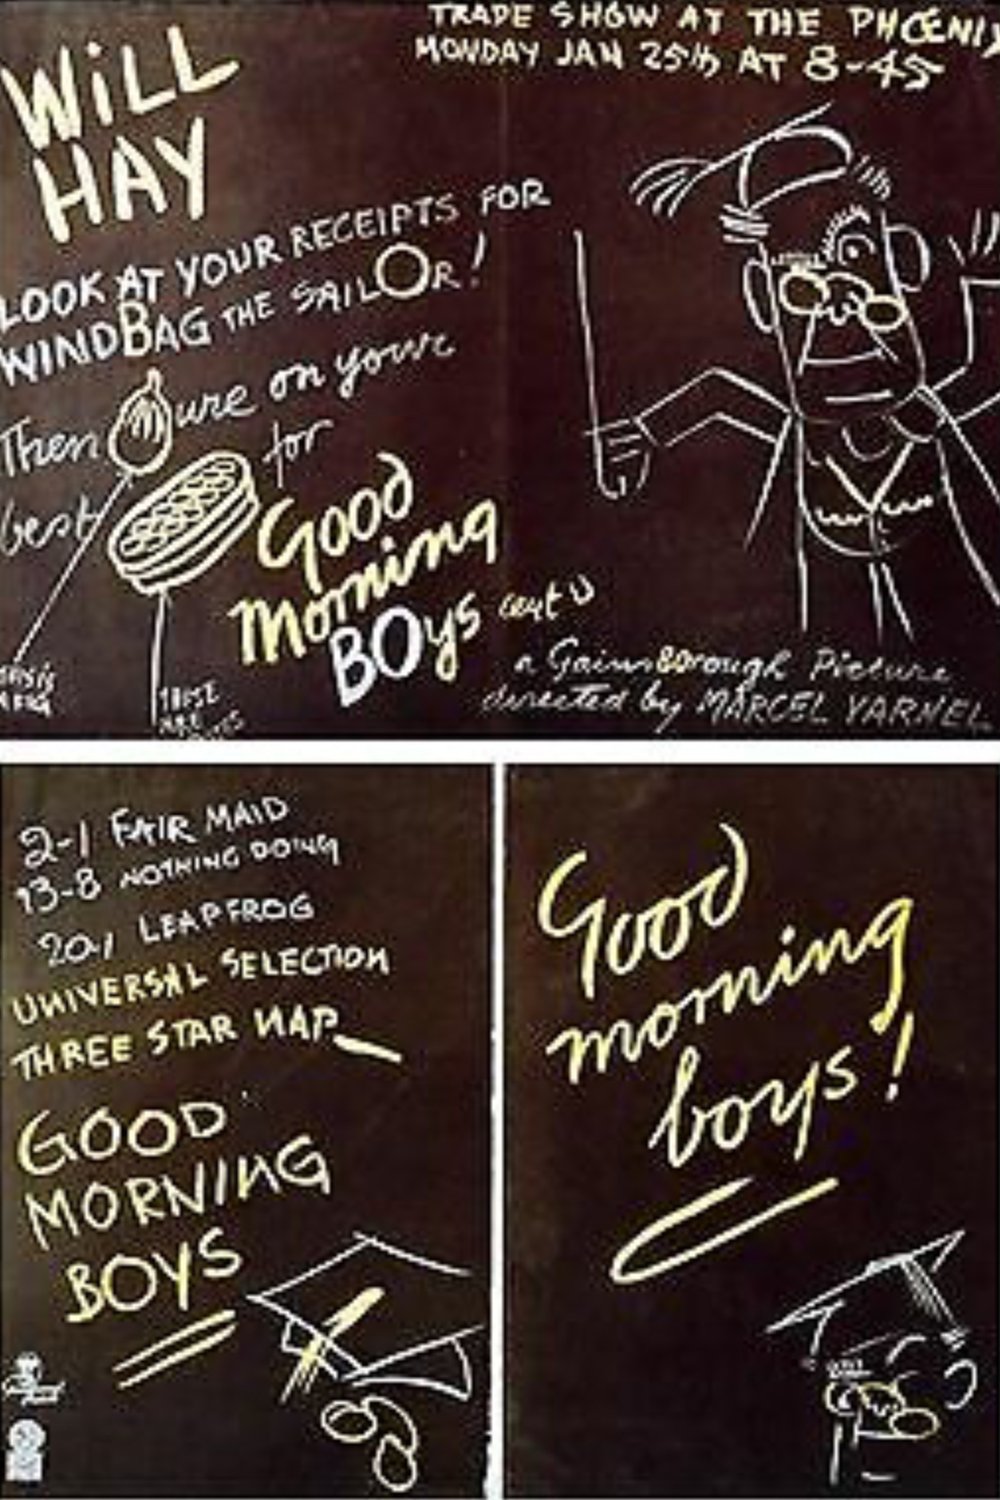 TRADE SHOW AT THE PHOENIX
MONDAY JAN 25th AT 8-45
WiLL
HAY
LOOK AT YOUR RECEIPTS FOR
WINDBAG THE SAILOR!
Then ure on your
best for
Good
Morning
BOys cert U
a GainsBOrough Picture
directed by MARCEL VARNEL
THIS IS
A FIG
THESE
ARE
2-1 FAIR MAID
13-8 NOTHING DOING
20-1 LEAPFROG
UNIVERSAL SELECTION
THREE STAR NAP
GOOD
MORNING
BOYS
Good
morning
boys!